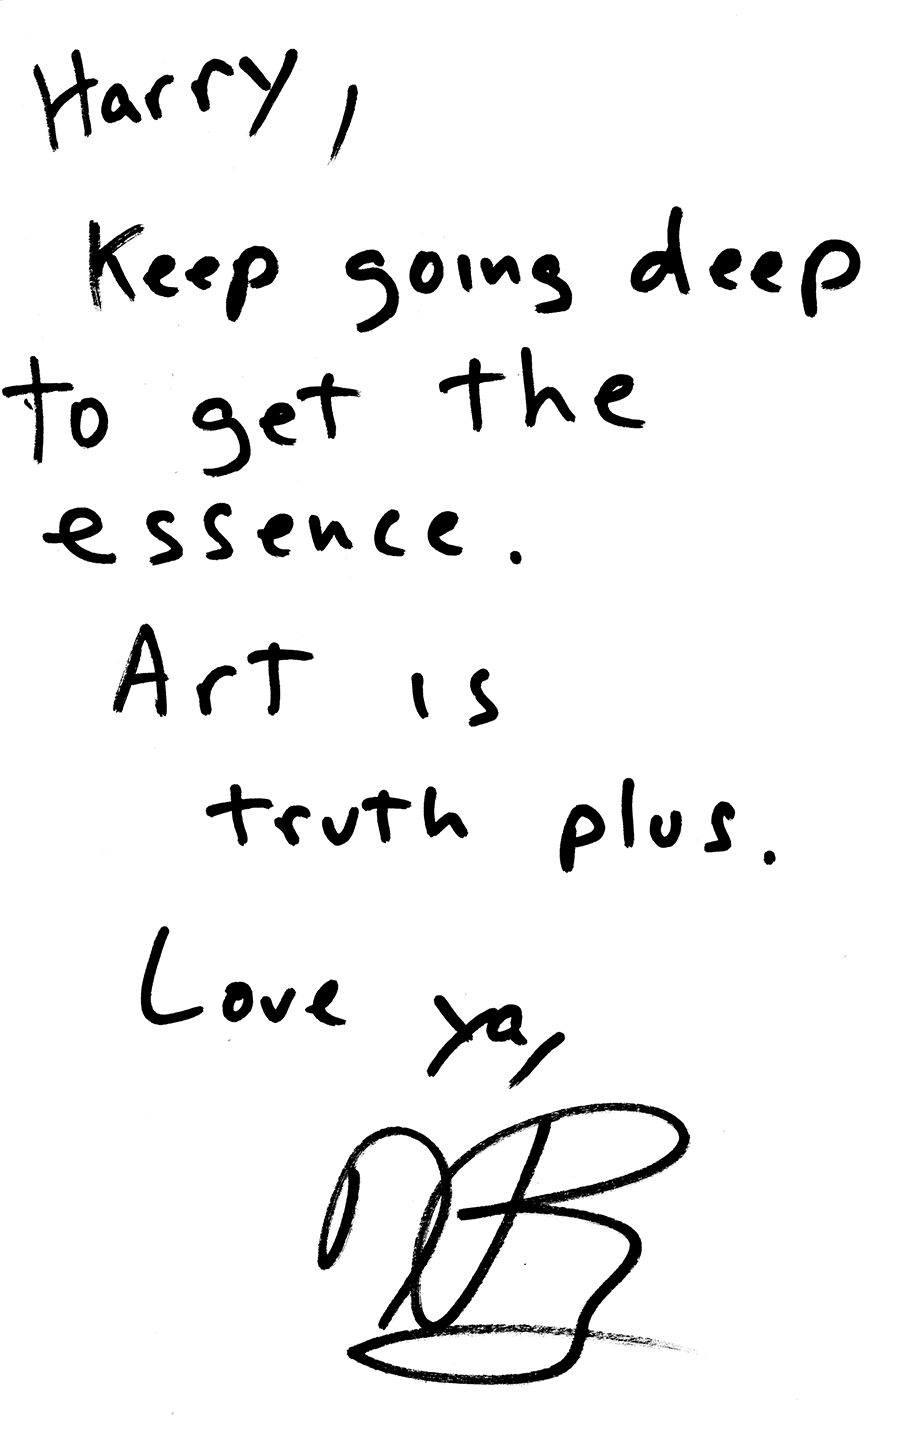 Harry,
Keep going deep
to get the
essence.
Art is
truth plus.
Love ya,